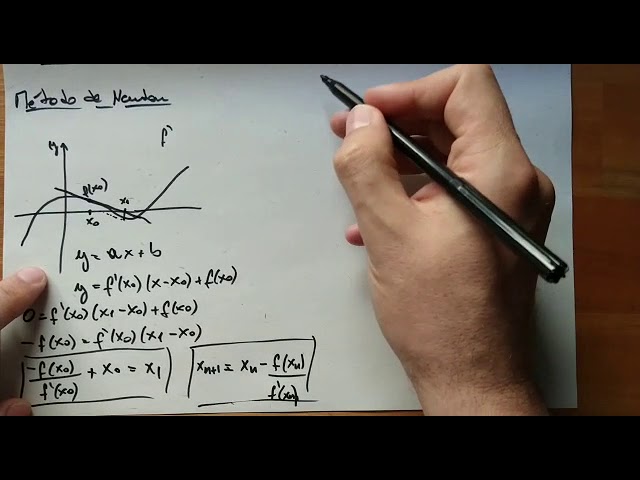 Método de Newton
f'
y
f(x0)
x1
x0
y = ax + b
y = f'(x0) (x-x0) + f(x0)
0 = f'(x0) (x1-x0) + f(x0)
-f(x0) = f'(x0) (x1-x0)
-f(x0)/f'(x0) + x0 = x1
xn+1 = xn - f(xn)/f'(xn)